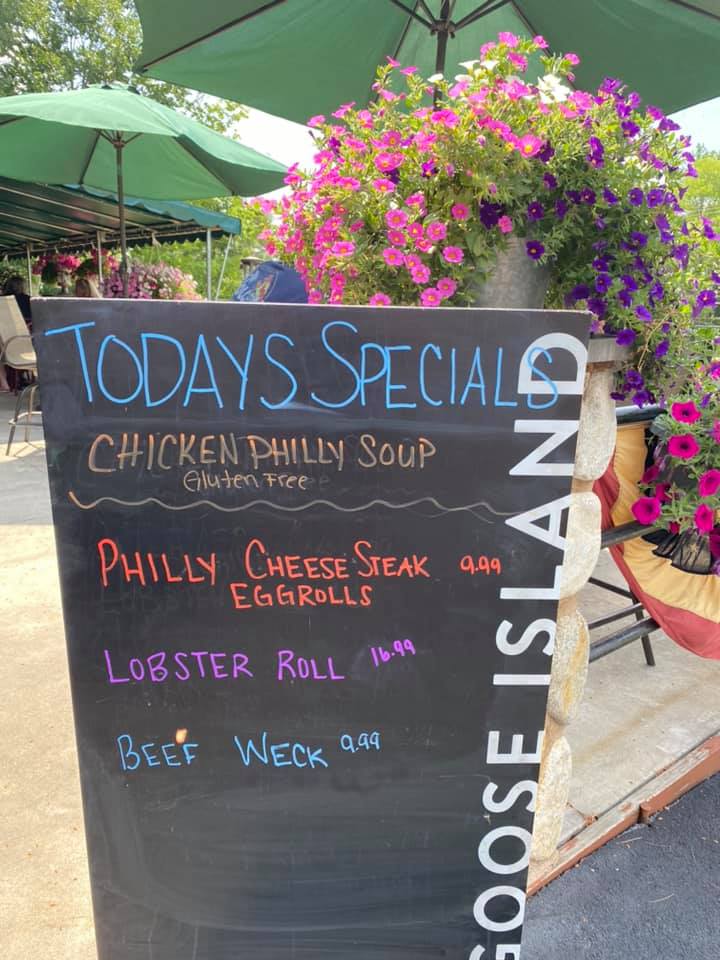 TODAYS SPECIALS
CHICKEN PHILLY SOUP
Gluten Free
PHILLY CHEESE STEAK 9.99
EGGROLLS
LOBSTER ROLL 16.99
BEEF WECK 9.99
GOOSE ISLAND